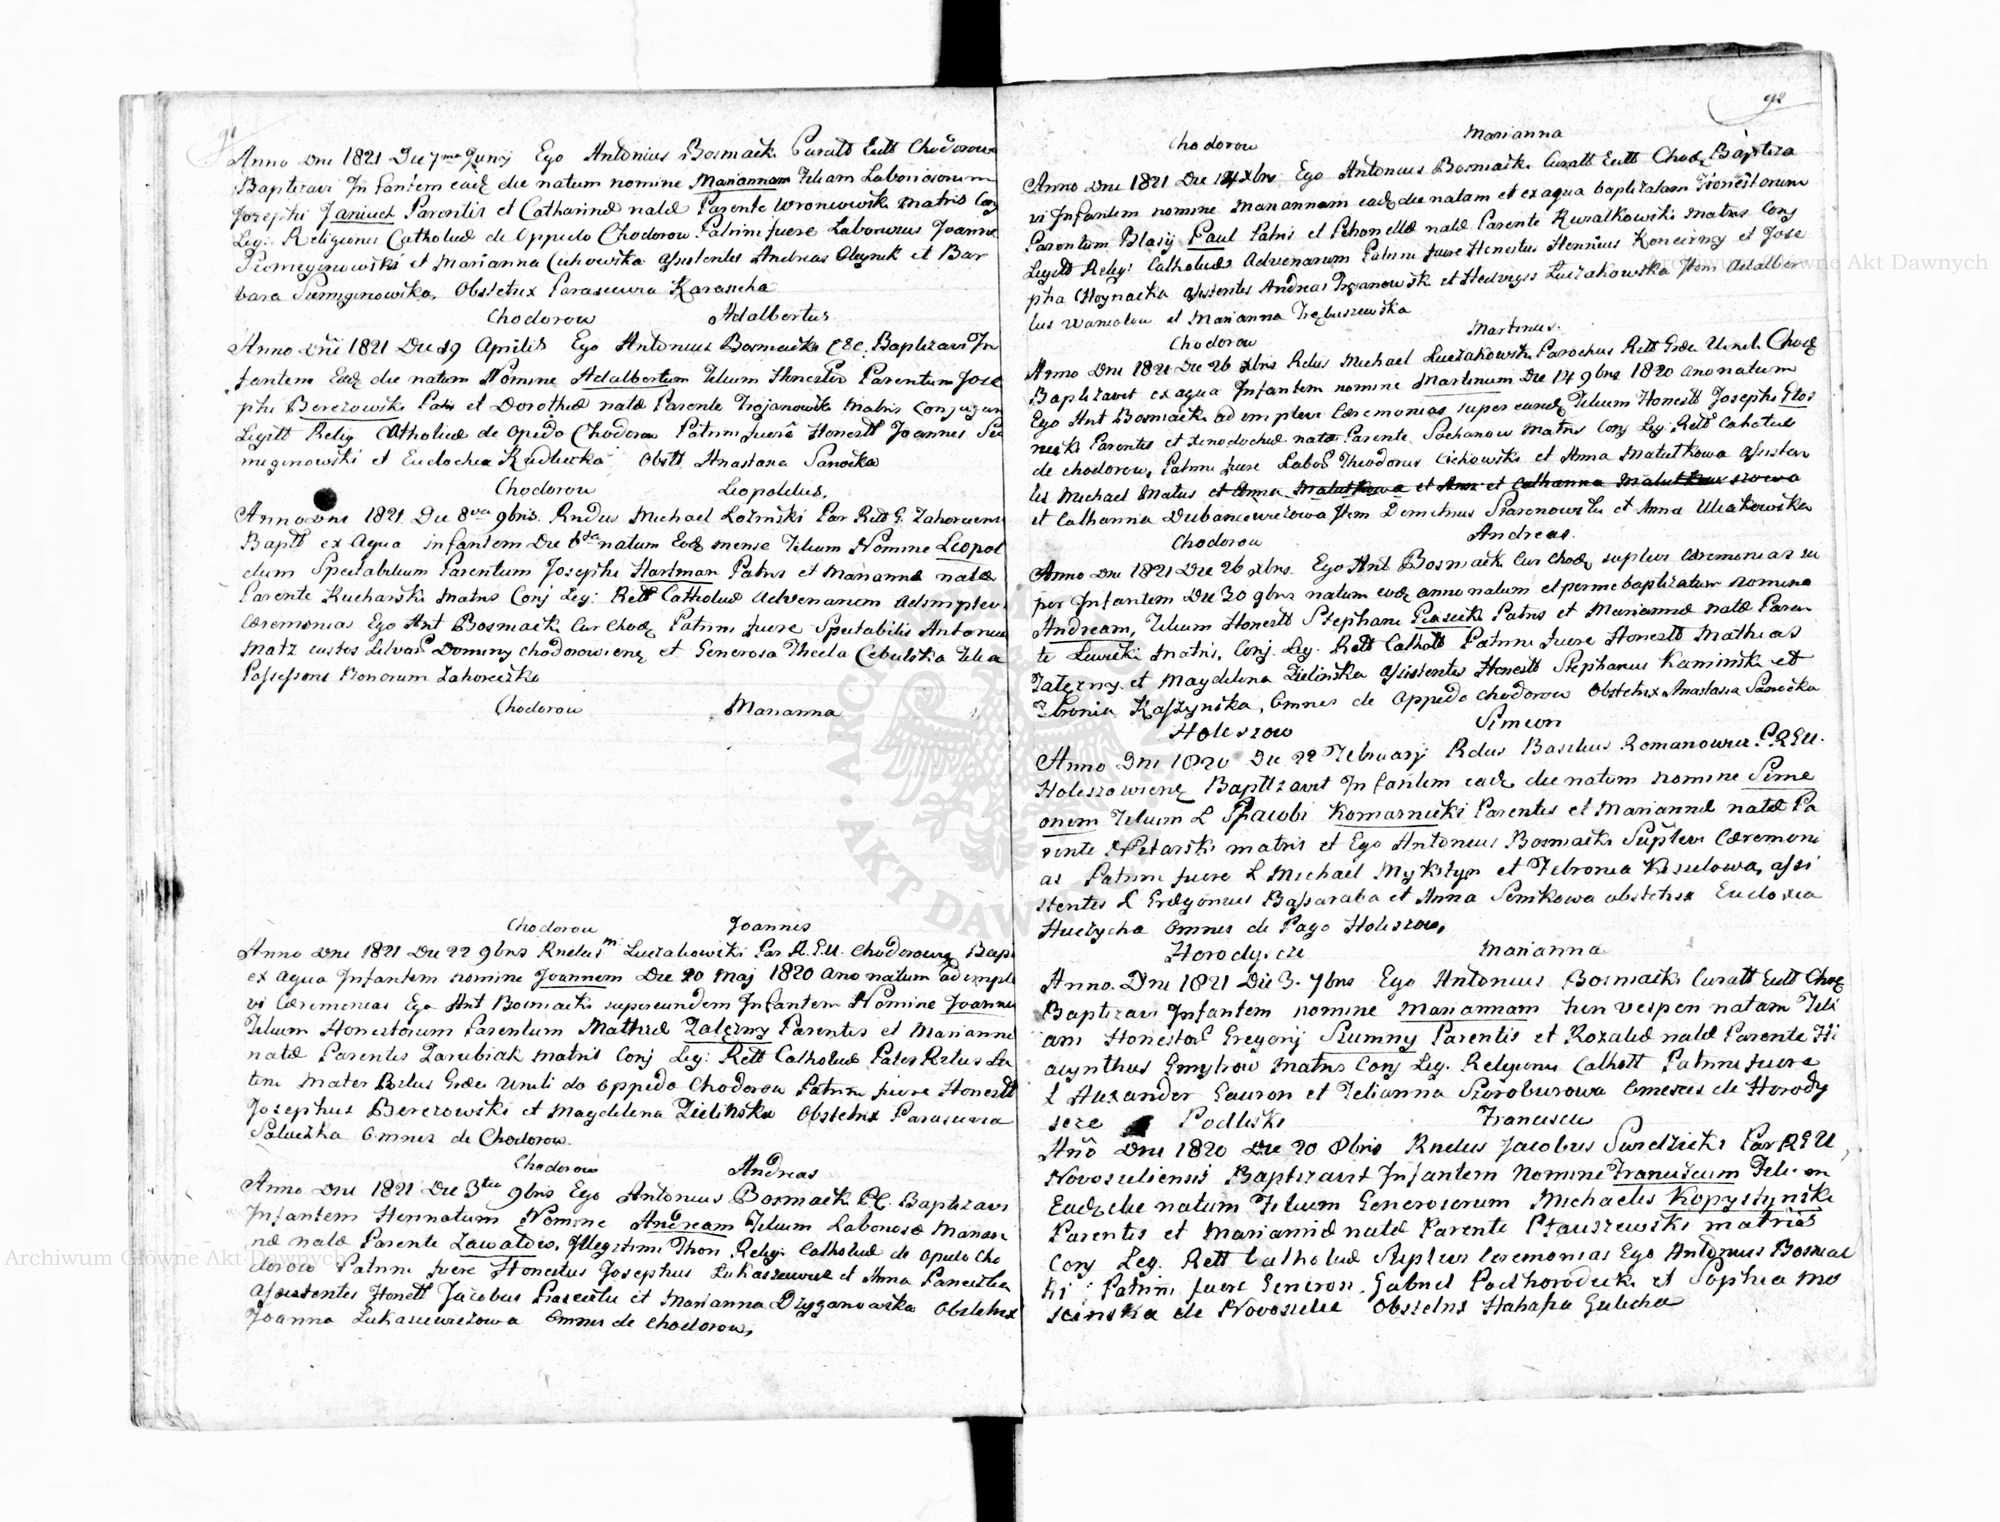 91
Anno Dni 1821 Die 7ma Junij Ego Antonius Bosmacki Curatt Ecctt Chodorow
Baptizavi Infantem eadz die natum nomine Mariannam Filiam Laboriosorum
Josephi Janiuck Parentis et Catharinæ natæ Parente Wroniowski Matris Conj
Leg: Religionis Catholicæ de Oppido Chodorow Patrini fuere Laboriosus Joannes
Piemiginowski et Marianna Cichowska assistentes Andreas Oleynik et Bar
bara Piemiginowska, Obstetrix Parascevia Karascha
Chodorow Adalbertus
Anno Dni 1821 Die 19 Aprilis Ego Antonius Bosmacki C E C. Baptizavi In
fantem Eadz die natum Nomine Adalbertum Filium Honestor Parentum Jose
phi Berezowski Patris et Dorotheæ natæ Parente Trojanowski Matris Conjugum
Legitt Relig Catholicæ de Opido Chodorow Patrini fuere Honestt Joannes Pie
miginowski et Eudochia Kudlicka Obstt Anastasia Sanocka
Chodorow Leopoldus.
Anno Dni 1821 Die 8va 9bris. Rndus Michael Lozinski Par Ritt G. Zahorcens
Baptt ex Aqua infantem Die 6ta natum Eodz mense Filium Nomine Leopol
dum Spectabilium Parentum Josephi Hartman Patris et Mariannæ natæ
Parente Kucharski Matris Conj Leg: Ritt Catholicæ Advenarum Adimplevi
Cæremonias Ego Ant Bosmacki Cur Chodz Patrini fuere Spectabilis Antonius
Matz custos Silvar Dominij Chodorowienz et Generosa Thecla Cebulska Filia
Possessoris Bonorum Zahoreczko
Chodorow Marianna
Chodorow Joannes
Anno Dni 1821 Die 22 9bris Rndus Luczakowski Par R. G.U. Chodorowienz Bapt
ex Aqua Infantem nomine Joannem Die 20 Maj 1820 Ano natum adimple
vi Cæremonias Ego Ant Bosmacki super eundem Infantem Nomine Joannes
Filium Honestorum Parentum Mathiæ Zalezny Parentis et Mariannæ
natæ Parentis Zarubiak Matris Conj Leg: Ritt Catholicæ Pater Ritus La
tini Mater Ritus Græci Uniti de Oppido Chodorow Patrini fuere Honestt
Josephus Berezowski et Magdelena Zielinska Obstetrix Parascevia
Saluczka Omnes de Chodorow.
Chodorow Andreas
Anno Dni 1821 Die 3tia 9bris Ego Antonius Bosmacki P.C. Baptizavi
Infantem Heri natum Nomine Andream Filium Laboriosæ Marian
næ natæ Parente Zawalow, Illegitimi Thori Relig: Catholicæ de Opido Cho
dorow Patrini fuere Honestus Josephus Lukasiewicz et Anna
Assistentes Honestt Jacobus Piasecki et Marianna Dzyganowska Obstetrix
Joanna Lukasiewiczowa Omnes de Chodorow,
92
Chodorow Marianna
Anno Dni 1821 Die 14 Xbris Ego Antonius Bosmacki Curatt Ecctt Chodz Baptiza
vi Infantem nomine Mariannam eadz die natam et ex aqua baptizatam Honestorum
Parentum Blasij Paul Patris et Petronellæ natæ Parente Kuralkowski Matris Conj
Legitt Relig: Catholicæ Advenarum Patrini fuere Honestus Henricus Koncirzny et Jose
pha Choynacka assistentes Andreas Trojanowski et Hedvigis Luczakowska Item Adalber
tus Waniolow et Marianna Trębuszewska
Chodorow Martinus.
Anno Dni 1821 Die 26 Xbris Rdus Michael Luczakowski Parochus Ritt Græci Unit. Chodz
Baptizavit ex aqua Infantem nomine Martinum Die 14 9bris 1820 ano natum
Ego Ant Bosmacki adimplevi Cæremonias super eundz Filium Honestt Josephi Glos
necki Parentis et Xenodochiæ natæ Parente Sochanow Matris Conj Leg: Ritt Catolicæ
de Chodorow, Patrini fuere Labor Theodorus Cichowski et Anna Matutkowa assisten
tes Michael Matus et Anna Matutkowa et Anna et Catharina Matutkowa
et Catharina Durbaniewiczowa Item Demetrius Staronowski et Anna Uliakowska
Chodorow Andreas.
Anno Dni 1821 Die 26 Xbris Ego Ant Bosmacki Cur Chodz suplevi Cæremonias su
per Infantem Die 30 9bris natum eodz anno natum et per me baptizatum Nomine
Andream, Filium Honestt Stephani Piasecki Patris et Mariannæ natæ Paren
te Lewicki Matris, Conj. Leg: Ritt Catholt Patrini fuere Honestt Mathias
Zalezny et Magdelena Zielinska Assistentes Honestt Stephanus Kaminski et
Febronia Kaszynska, Omnes de Oppido Chodorow Obstetrix Anastasia Sanocka
Holeszow Simeon
Anno Dni 1820 Die 22 Februarij Rdus Basilius Romanowicz P.R.G.U.
Holeszowienz Baptizavit Infantem eadz die natum nomine Sime
onem Filium L Jacobi Komarnicki Parentis et Mariannæ natæ Pa
rente Pietarski matris et Ego Antonius Bosmacki Suplevi Cæremoni
as Patrini fuere L Michael Mykityn et Febronia Kisielowa, assi
stentes L Gregorius Bassaraba et Anna Senikowa obstetrix Eudoxia
Huczycha Omnes de Pago Holeszow,
Horodyscze Marianna
Anno. Dni 1821 Die 3. 7bris Ego Antonius Bosmacki Curatt Ecctt Chodz
Baptizavi Infantem nomine Mariannam heri vesperi natam Fili
am Honestor Gregorij Szumny Parentis et Rozaliæ natæ Parente Hi
acynthus Gmytrow Matris Conj Leg. Religionis Catholt Patrini fuere
L Alexander Gauron et Felianna Szroburowa Omnes de Horody
scze Podliski Franciscus
Ano Dni 1820 Die 20 8bris Rndus Jacobus Swidzicki Par R G U
Novosieliensis Baptizavit Infantem Nomine Franciscum Filium
Eadz die natum Filium Generosorum Michaelis Kopystynski
Parentis et Mariannæ natæ Parente Ptaszewski matris
Conj Leg. Ritt Catholicæ Suplevi Ceremonias Ego Antonius Bosmac
ki Patrini fuere Generosi. Gabriel Podhorodecki et Sophia Mo
scinska de Novosielce Obstetrix Hahafia Gulicha
Archiwum Główne Akt Dawnych
Archiwum Główne Akt Dawnych
ARCHIWUM GŁÓWNE AKT DAWNYCH